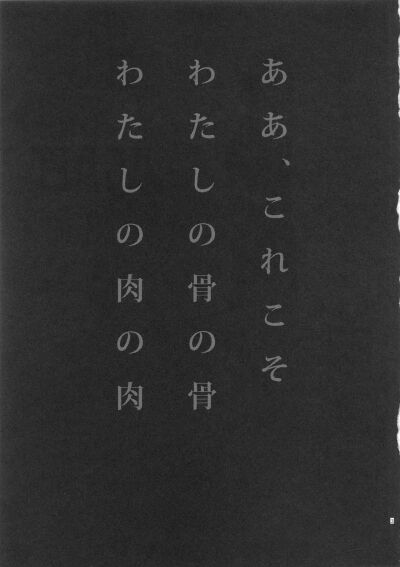 ああ、これこそ
わたしの骨の骨
わたしの肉の肉